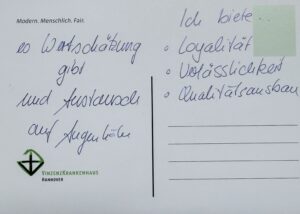 Modern. Menschlich. Fair.
es Wertschätzung
gibt
und Austausch
auf Augenhöhe
VINZENZKRANKENHAUS
HANNOVER
Ich biete...
• Loyalität
• Verlässlichkeit
• Qualitätsausbau